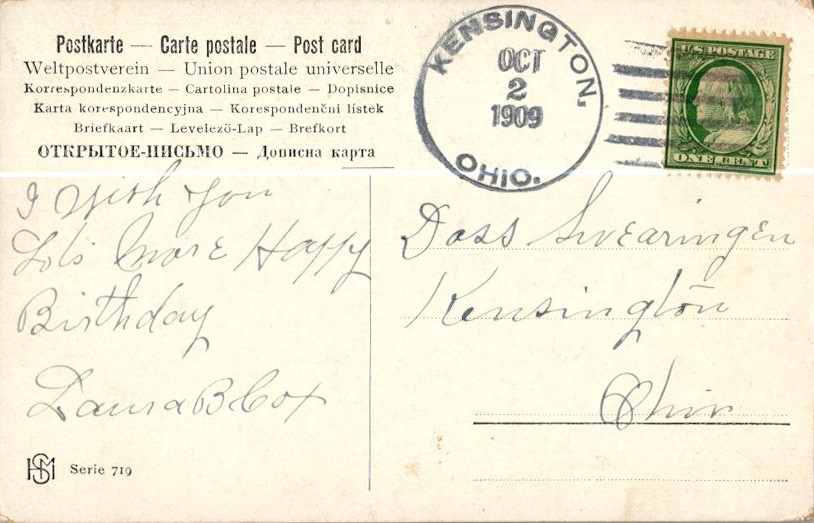 Postkarte — Carte postale — Post card
Weltpostverein — Union postale universelle
Korrespondenzkarte — Cartolina postale — Dopisnice
Karta korespondencyjna — Korespondenční lístek
Briefkaart — Levelező-Lap — Brefkort
ОТКРЫТОЕ-ПИСЬМО — Дописна карта
KENSINGTON,
OCT
2
1909
OHIO.
U.S. POSTAGE
ONE CENT
I Wish you
Lots more Happy
Birthday
Laura B Cox
Doss Swearingen
Kensington
Ohio
HSM
Serie 719